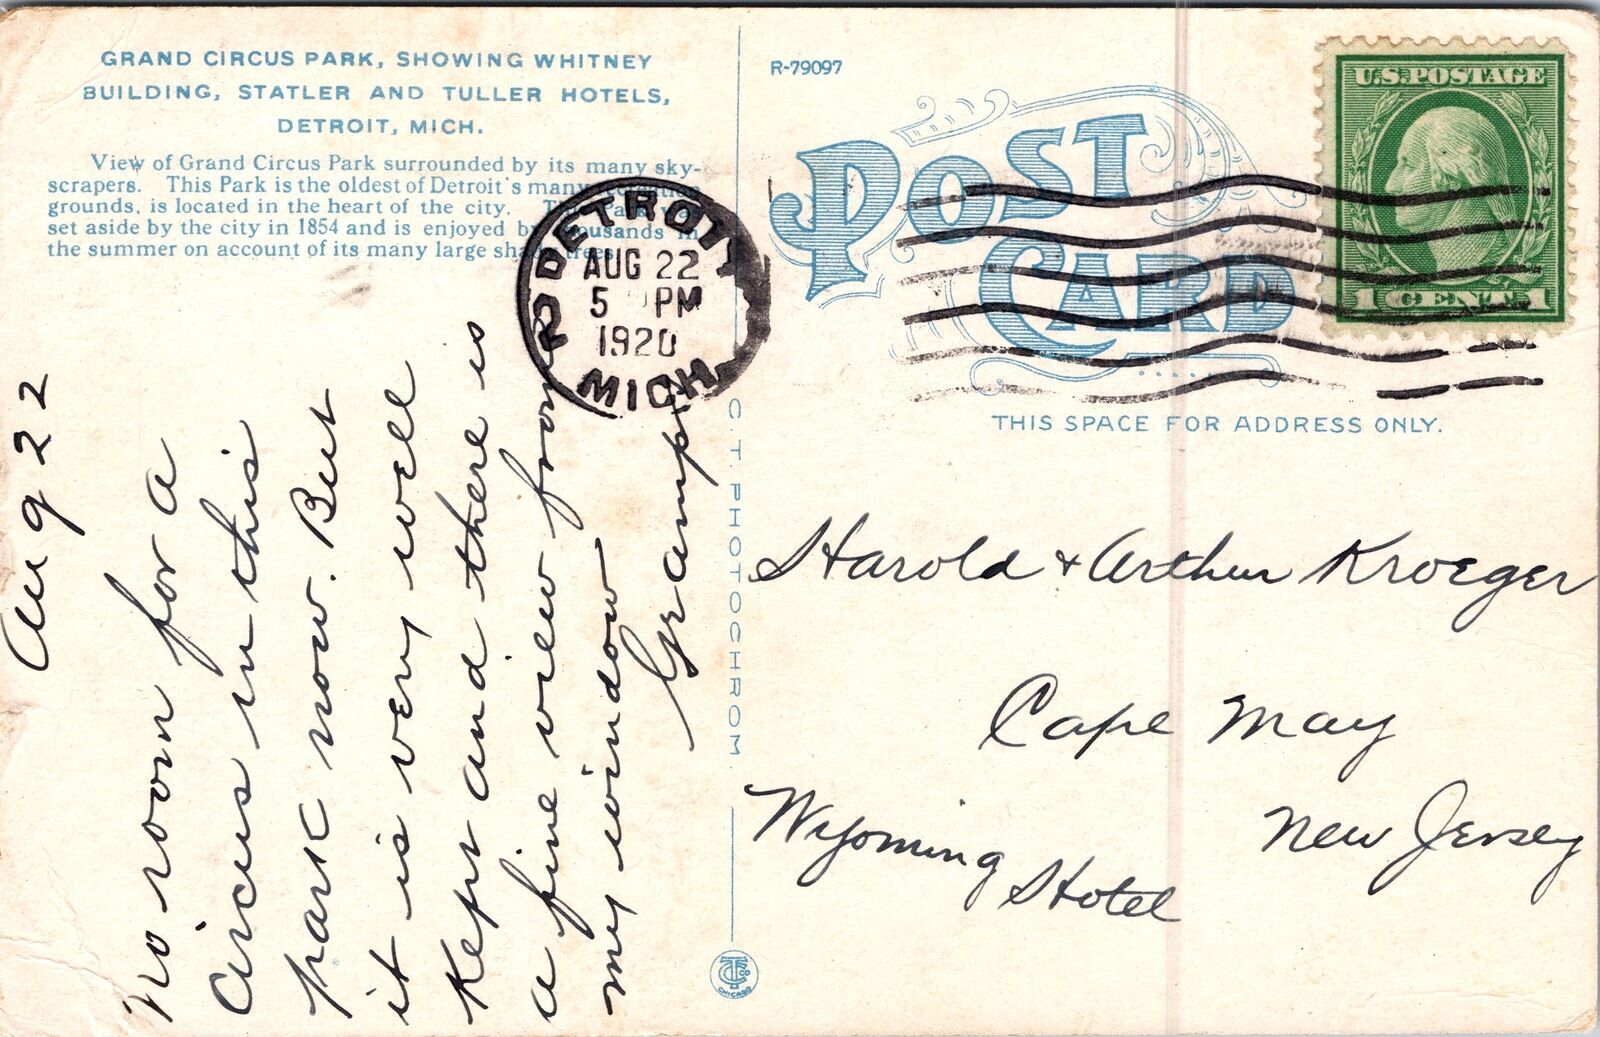 GRAND CIRCUS PARK, SHOWING WHITNEY
BUILDING, STATLER AND TULLER HOTELS,
DETROIT, MICH.
View of Grand Circus Park surrounded by its many sky-
scrapers. This Park is the oldest of Detroit's many
grounds, is located in the heart of the city.
set aside by the city in 1854 and is enjoyed by thousands in
the summer on account of its many large shade trees.
Aug 22
No room for a
Circus in this
park now. But
it is very well
Kept and there is
a fine view from
my window
Gramp
DETROIT
AUG 22
5 PM
1920
MICH
C. T. PHOTOCHROM
CTCO
CHICAGO
R-79097
POST
CARD
U.S. POSTAGE
1 CENT 1
THIS SPACE FOR ADDRESS ONLY.
Harold & Arthur Kroeger
Cape May
New Jersey
Wyoming
Hotel